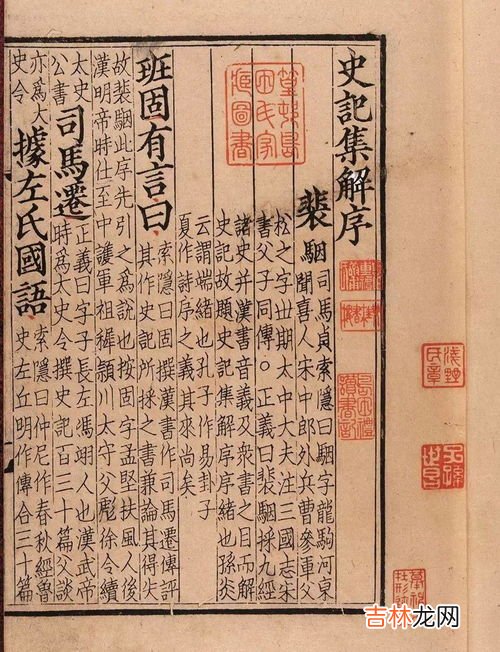 史記集解序
裴駰 司馬貞索隱曰駰字龍駒河東
聞喜人宋中郎外兵曹參軍父
松之字丗期太中大夫注三國志宋
書父子同傳○正義曰裴駰採九經
諸史并漢書音義及衆書之目而解
史記故題史記集解序序緒也孫炎
云謂端緒也孔子作易封子
夏作詩序之義其來尚矣
班固有言曰 索隱曰固撰漢書作司馬遷傳評
其作史記所採之書兼論其得失
故裴駰此序先引之爲說也按固字孟堅扶風人後
漢明帝時仕至中護軍祖穉潁川太守父彪徐令續
太史
公書
司馬遷 正義曰字子長左馮翊人也漢武帝
時爲太史令撰史記百三十篇父談
亦爲大
史令
據左氏國語 索隱曰仲尼作春秋經魯
史左丘明作傳合三十篇
篁邨島
田氏家
藏圖書
吉林龙网